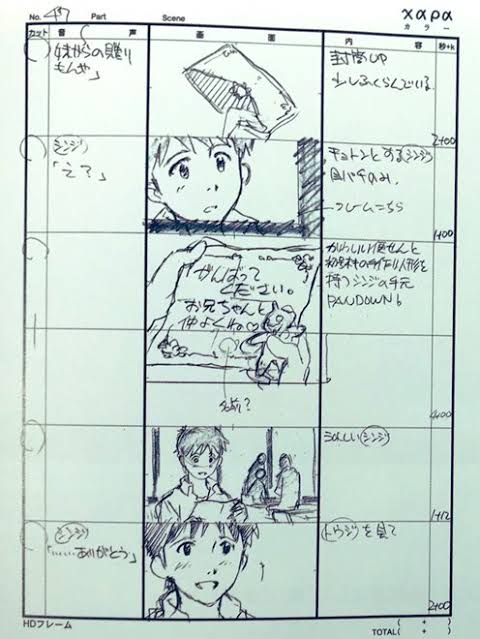 No. 43 Part Scene
χαρα
カラー
カット 音 声 画 面 内 容 秒+k
妹からの贈り
もんや」
封筒UP
少しふくらんでいる
2+00
シンジ
「え?」
キョトンとするシンジ
目パチのみ。
1+00
「がんばって
ください。
お兄ちゃんと
仲よくね。♡
かわいい便せんと
持つシンジの手元
PAN DOWN
名前?
4+00
うれしいシンジ
1+12
シンジ
「……ありがとう」
トウジを見て
2+00
HDフレーム
TOTAL( + )